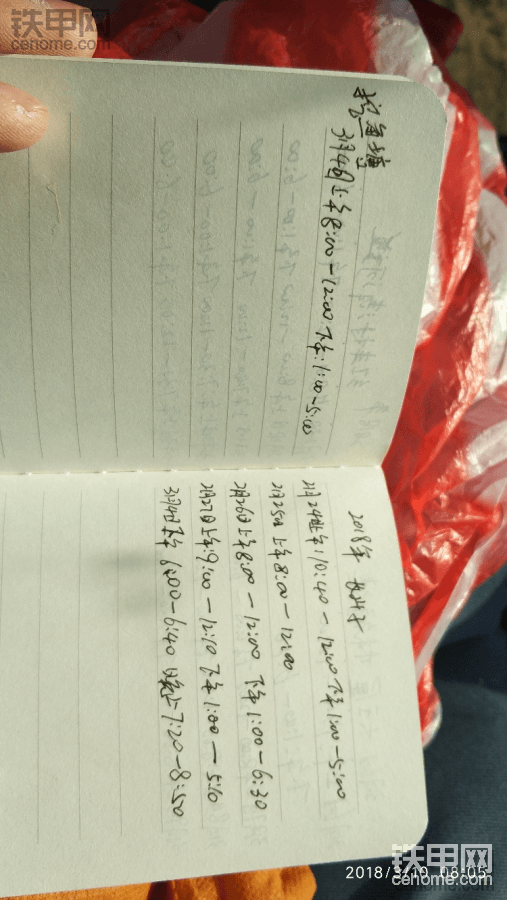 铁甲网
cehome.com
挖鱼塘
3月4日上午8:00-12:00下午:1:00-5:00
2018年
2月24日上午:10:40-12:00下午1:00-5:00
2月25日上午8:00-12:00
2月26日上午8:00-12:00 下午1:00-6:30
2月27日上午:9:00-12:10下午1:00-5:10
3月4日下午6:00-6:40 晚上7:20-8:50
铁甲网
2018/3/10 08:05
cehome.com